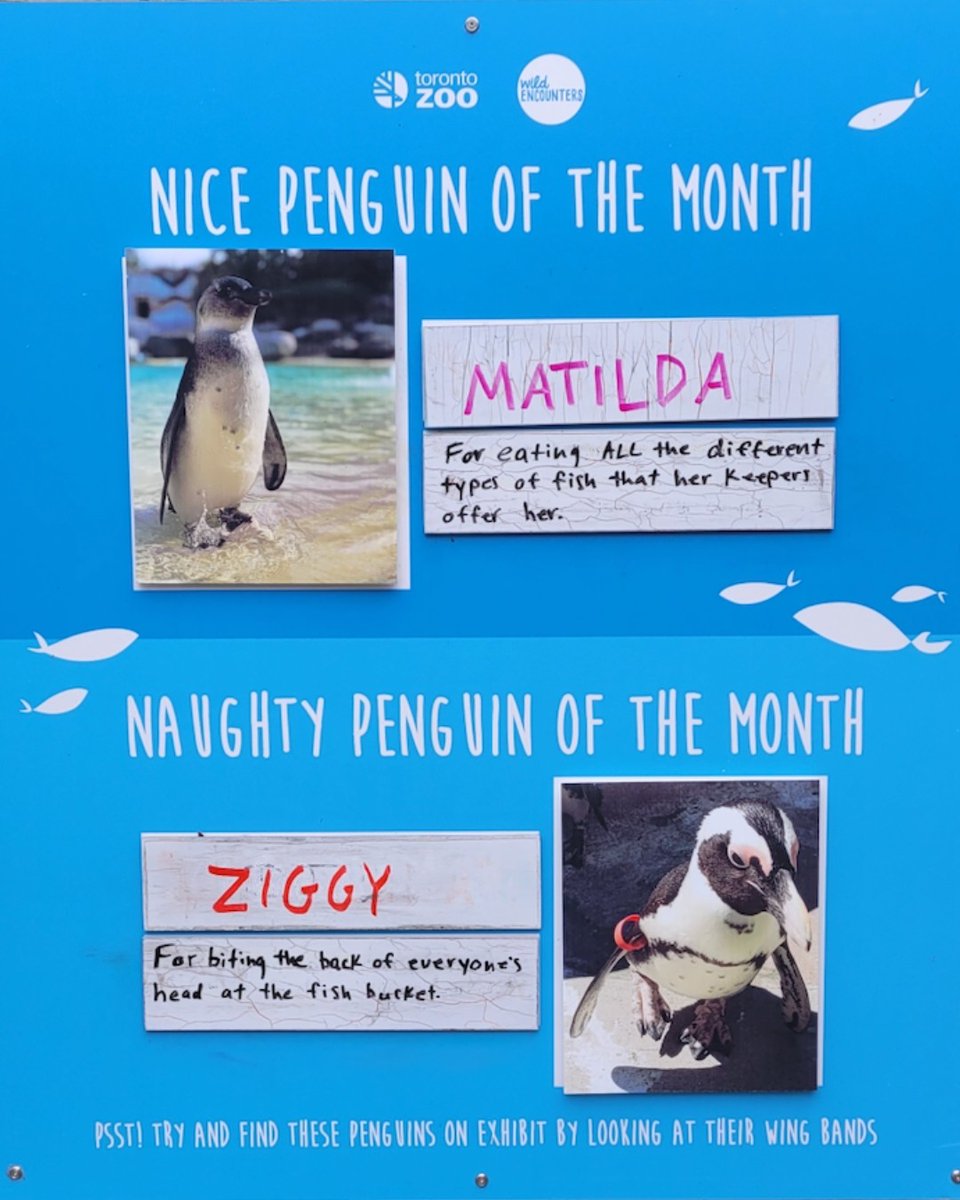 toronto
ZOO
wild
ENCOUNTERS
NICE PENGUIN OF THE MONTH
MATILDA
For eating ALL the different
types of fish that her keepers
offer her.
NAUGHTY PENGUIN OF THE MONTH
ZIGGY
For biting the back of everyone's
head at the fish bucket.
PSST! TRY AND FIND THESE PENGUINS ON EXHIBIT BY LOOKING AT THEIR WING BANDS